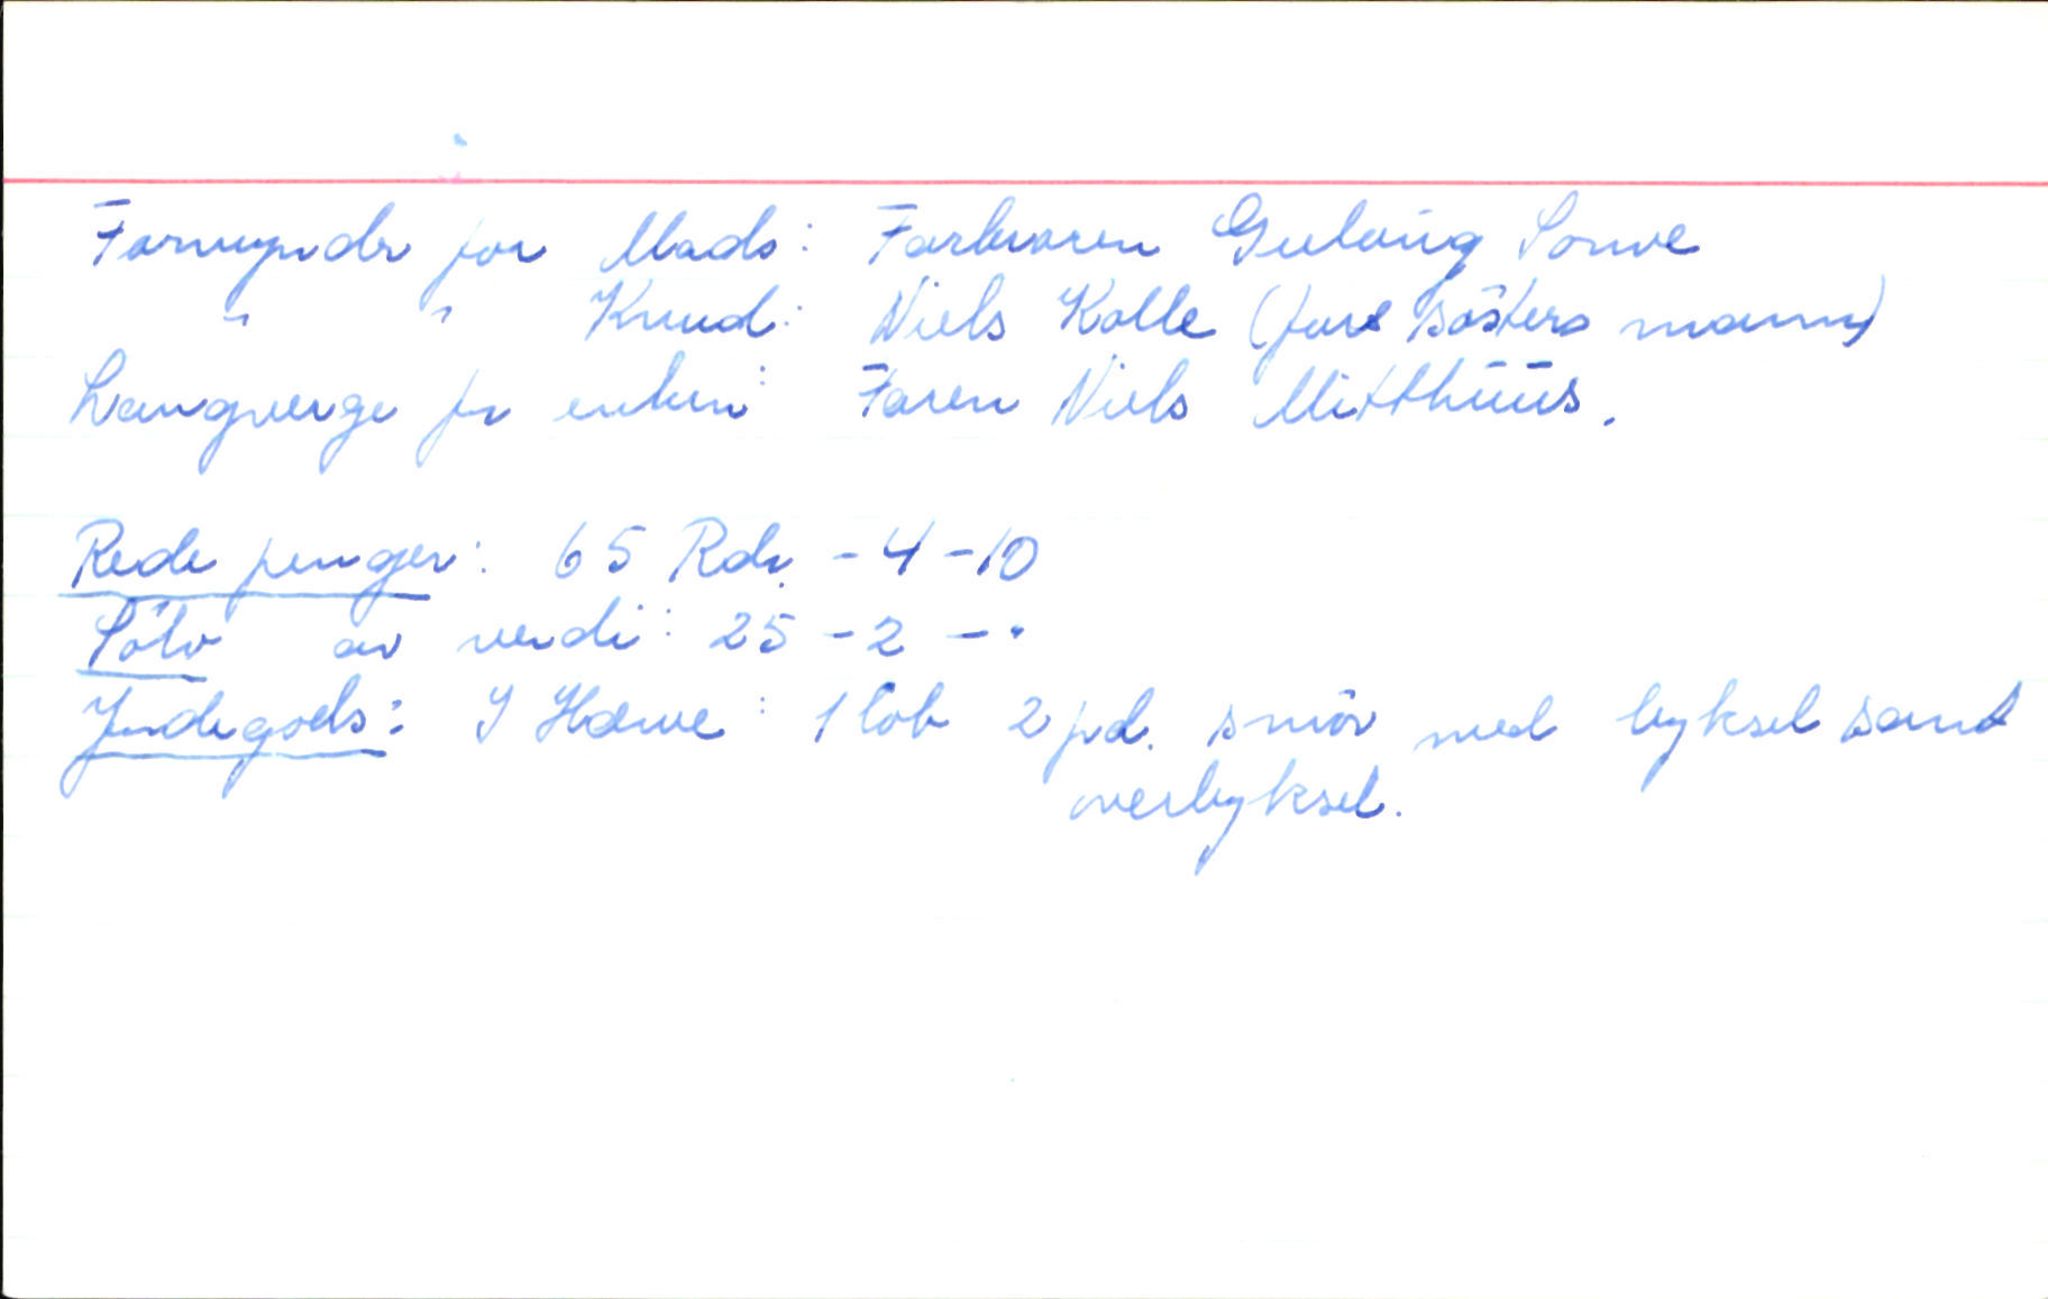 Formynder for Mads: Farbroren Gulāug Sonve
" " Knud: Niels Kolle (fars søsters mann)
Laugverge for enken: Faren Niels Mitthūus.
Rede penger: 65 Rdr. - 4 - 10
Sölv av verdi: 25 - 2 - .
Jordegods: I Hæwe: 1 löb 2 pd. smör med byksel samt
overbyksel.